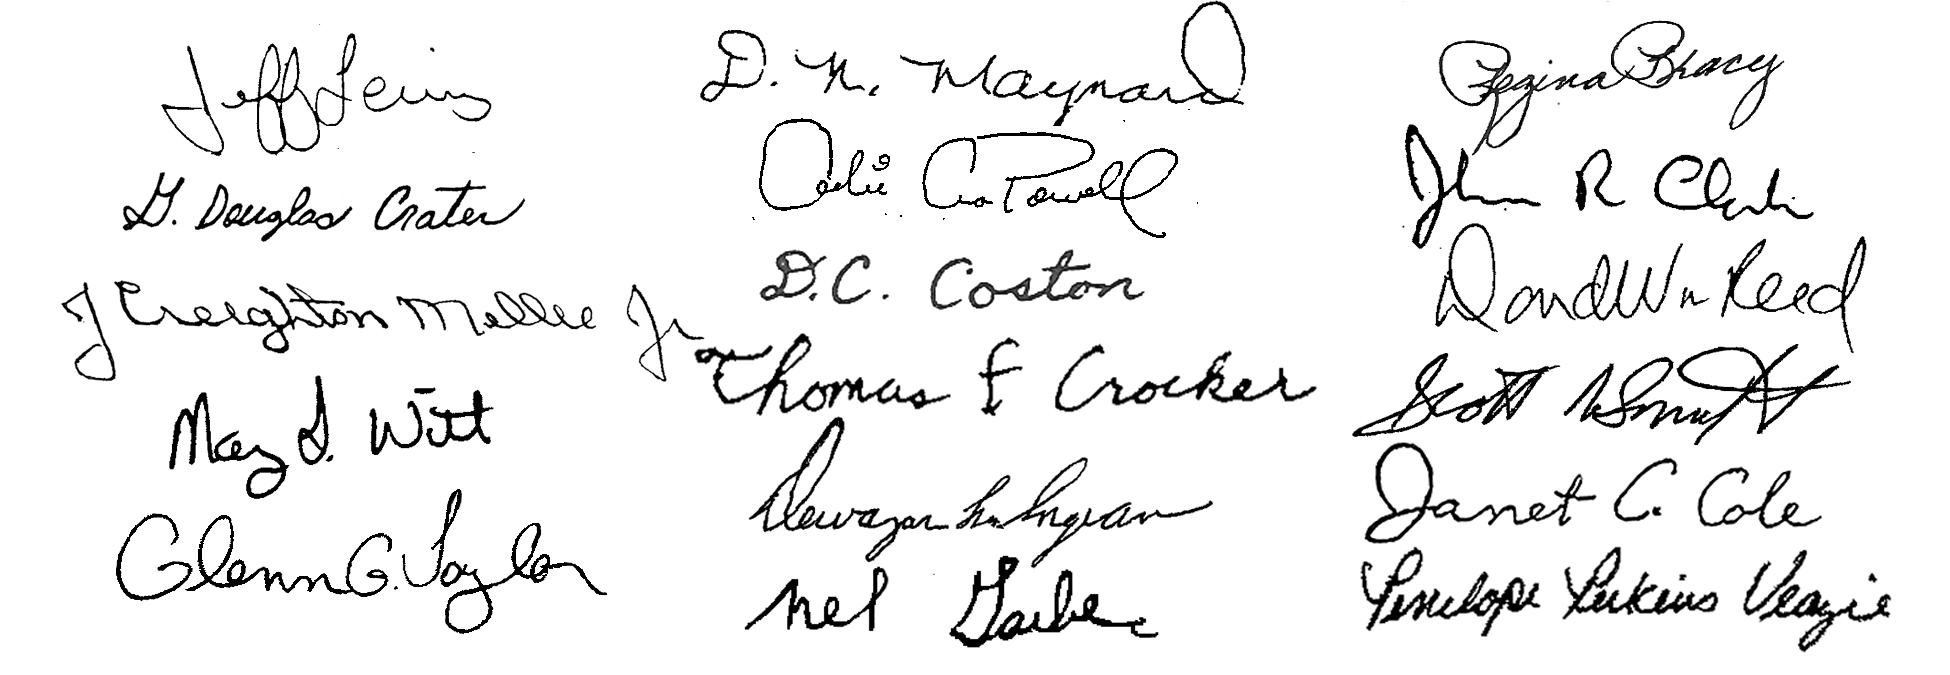 Jeff Lewis
G. Douglas Crater
J Creighton McLlee Jr
May L. Witt
Glenn G. Taylor
D. N. Maynard
Powell
D.C. Coston
Thomas F Crocker
Ingram
Mel Garber
Regina Bracy
John R Clark
David Wm Reed
Scott NeSmith
Janet C. Cole
Penelope Perkins Veazie